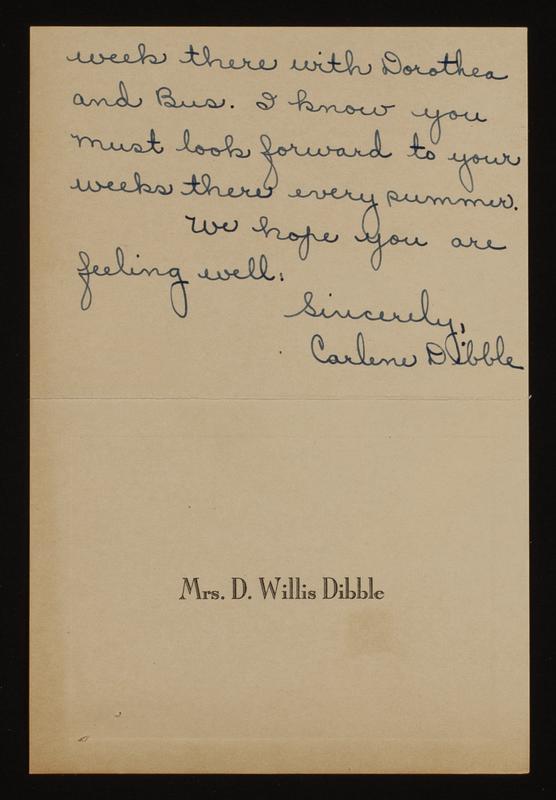 week there with Dorothea
and Bus. I know you
must look forward to your
weeks there every summer.
We hope you are
feeling well.
Sincerely,
Carlene Dibble
Mrs. D. Willis Dibble